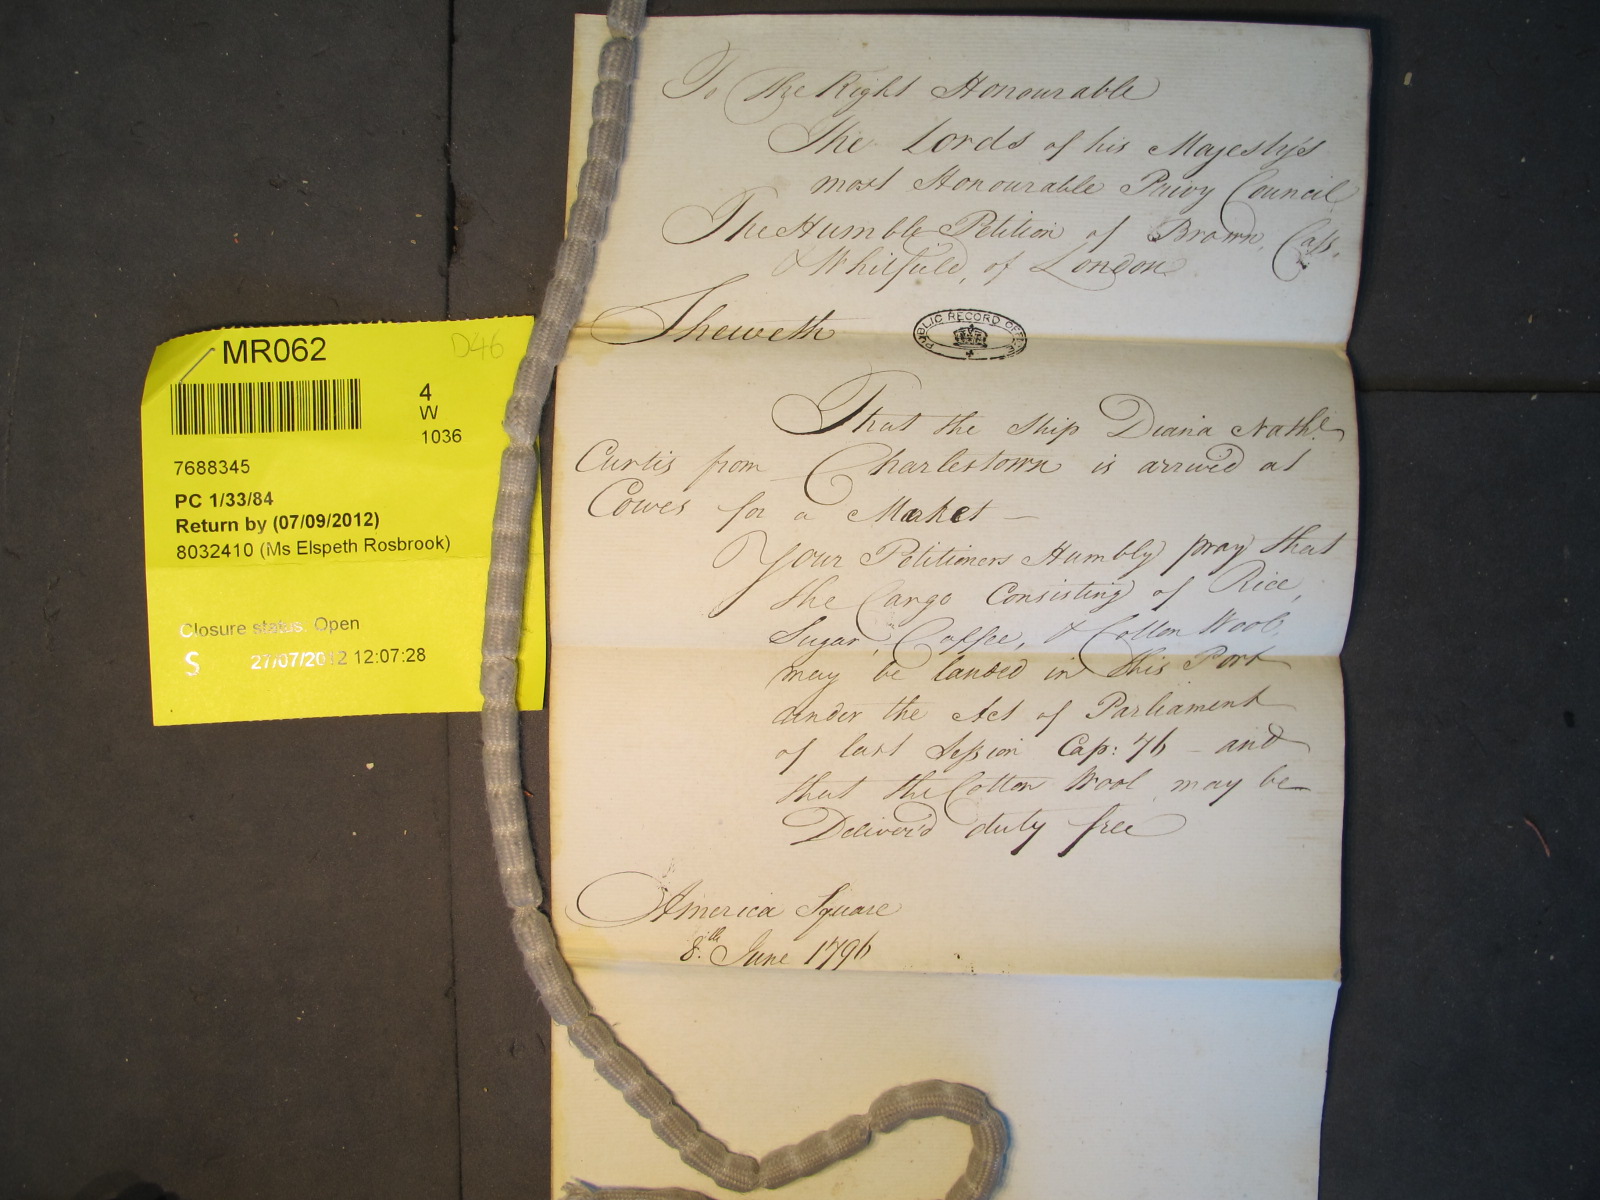 MR062
D46
4
W
1036
7688345
PC 1/33/84
Return by (07/09/2012)
8032410 (Ms Elspeth Rosbrook)
Closure status: Open
S 27/07/2012 12:07:28
To The Right Honourable
The Lords of his Majesty's
most Honourable Privy Council
The Humble Petition of Brown, Cass,
& Whitfield, of London
Sheweth
PUBLIC RECORD OFFICE
That the Ship Diana Nathl.
Curtis from Charlestown is arrived at
Cowes for a Market —
Your Petitioners Humbly pray that
the Cargo Consisting of Rice,
Sugar, Coffee, & Cotton Wool,
may be landed in this Port
under the Act of Parliament
of last Session Cap: 76 – and
that the Cotton Wool may be
Deliver'd duty free
America Square
8th June 1796